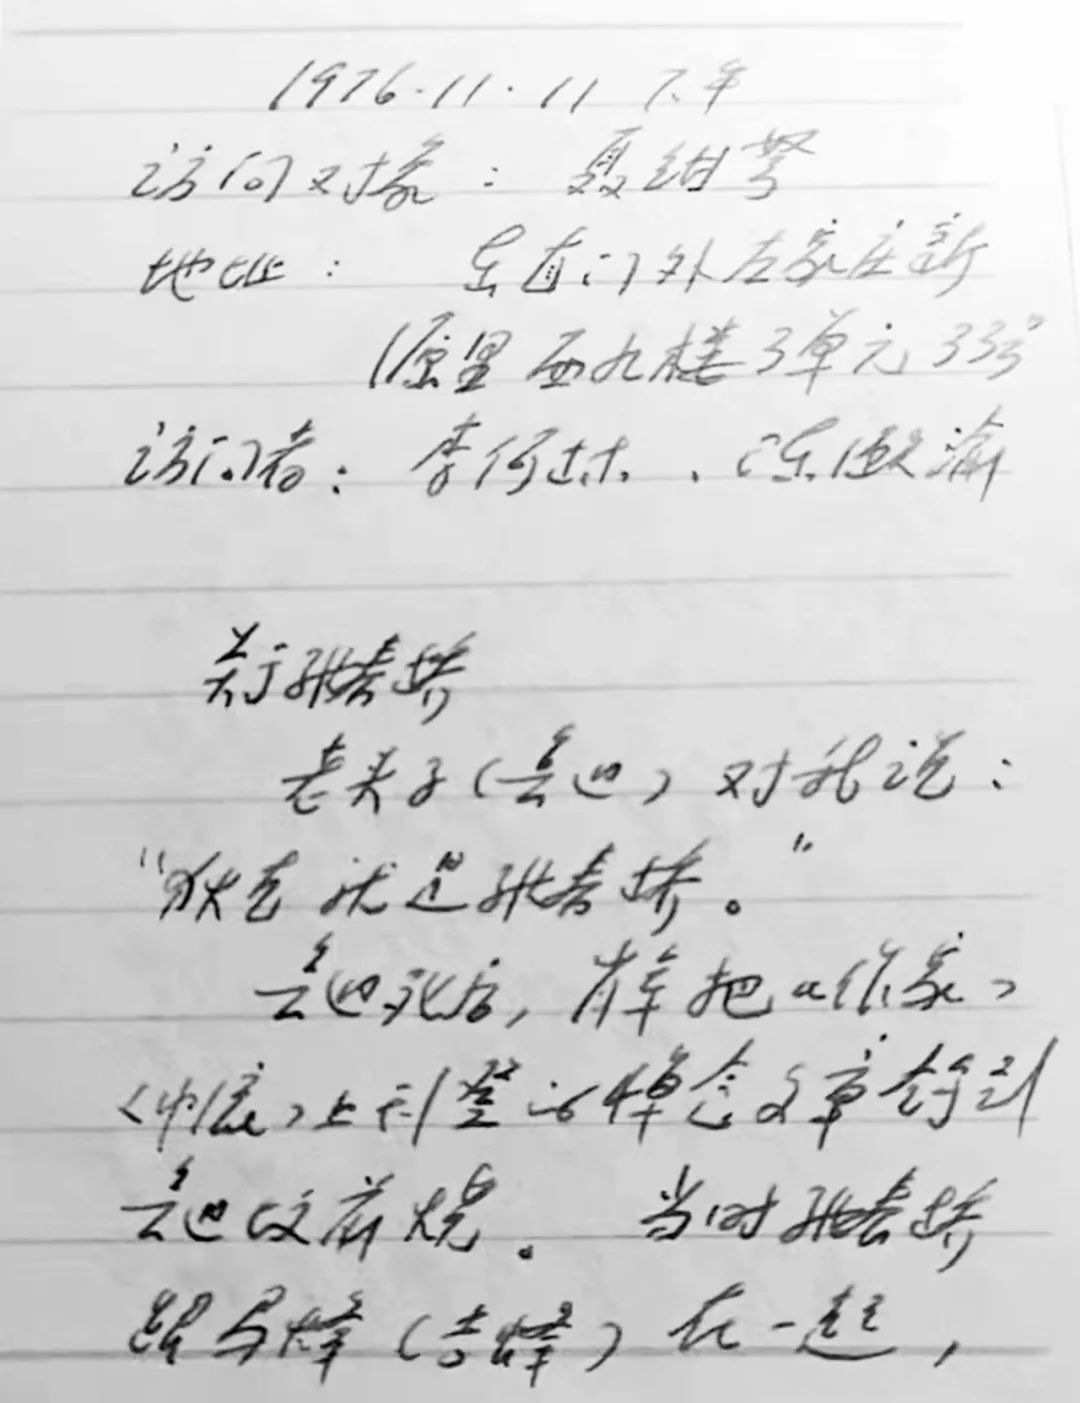 1976.11.11 下午
访问对象：聂绀弩
地址：东直门外左家庄新
源里西九楼3单元33号
访问者：李何林、陈漱渝
关于张春桥
老头子（鲁迅）对我说：
“狄克就是张春桥。”
鲁迅死后，萧军把《作家》
《中流》上刊登的悼念文章拿到
鲁迅坟前烧。当时张春桥
跟马蜂（吉蜂）在一起，